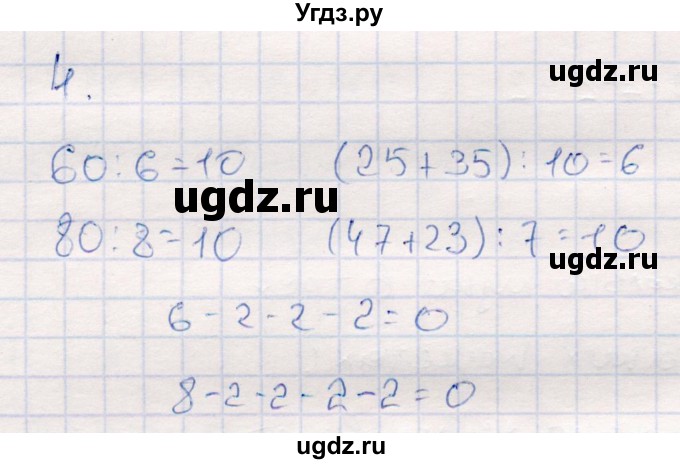 Угдз.ру
4.
ugdz.ru
60:6=10 (25+35):10=6
ugdz.ru
80:8=10 (47+23):7=10
ugdz.ru
6-2-2-2=0
8-2-2-2-2=0
ugdz.ru